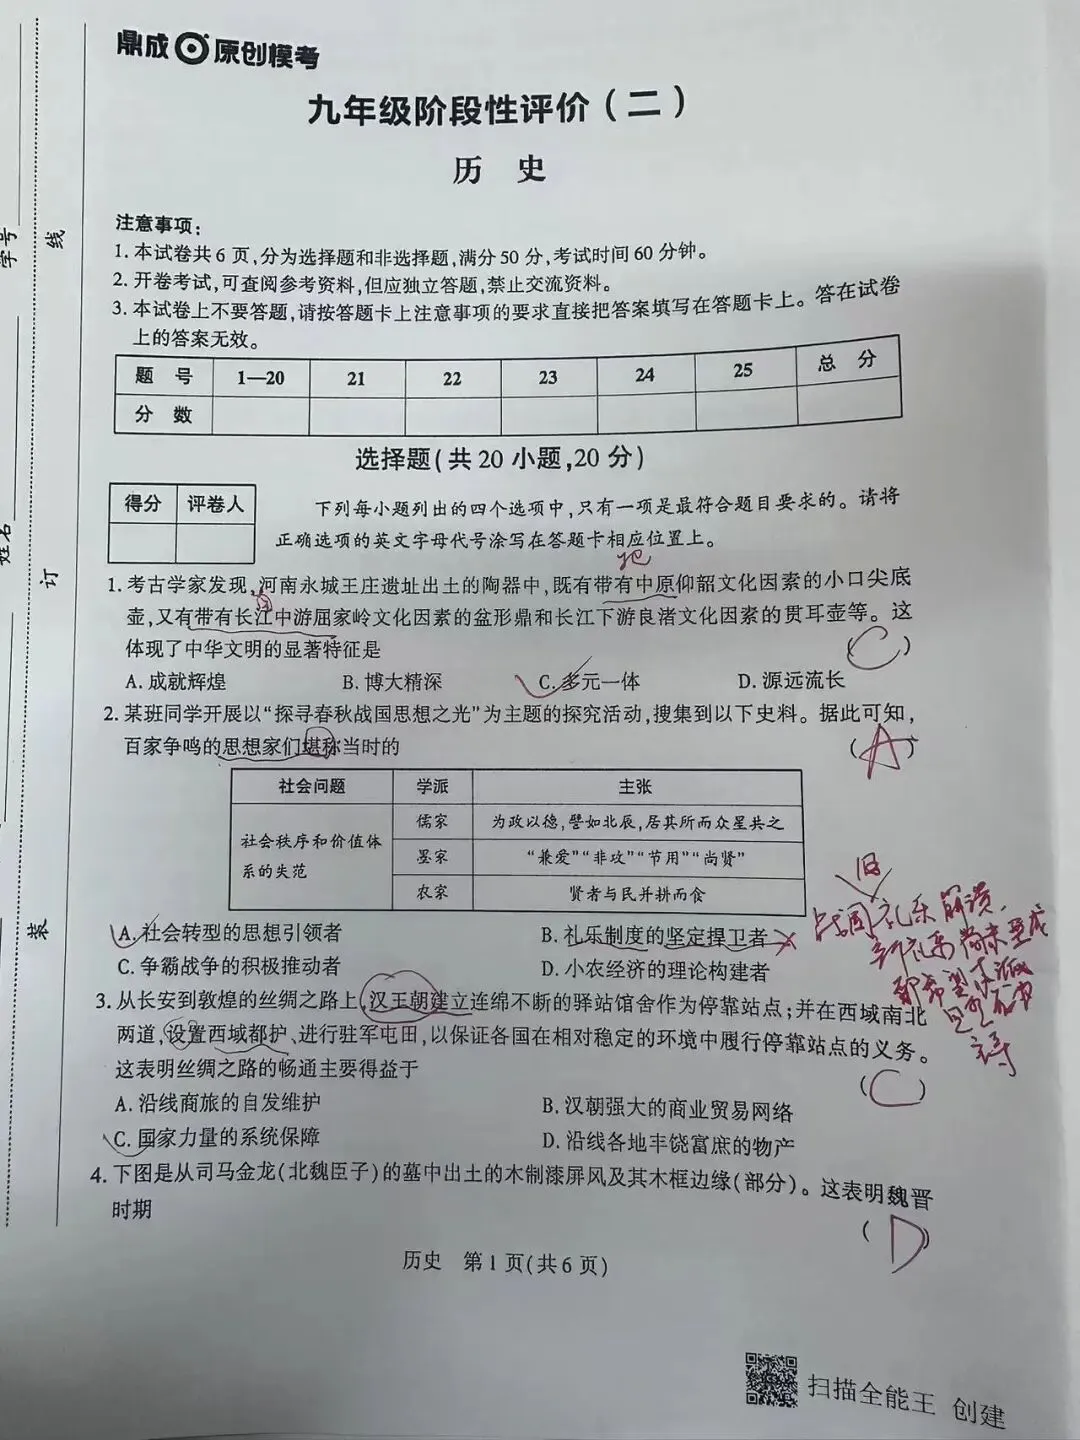 鼎成 原创模考
九年级阶段性评价(二)
历 史
注意事项:
1. 本试卷共 6 页,分为选择题和非选择题,满分 50 分,考试时间 60 分钟。
2. 开卷考试,可查阅参考资料,但应独立答题,禁止交流资料。
3. 本试卷上不要答题,请按答题卡上注意事项的要求直接把答案填写在答题卡上。答在试卷
上的答案无效。
题 号 1—20 21 22 23 24 25 总 分
分 数
选择题(共 20 小题,20 分)
得分 评卷人
下列每小题列出的四个选项中,只有一项是最符合题目要求的。请将
正确选项的英文字母代号涂写在答题卡相应位置上。
1. 考古学家发现,河南永城王庄遗址出土的陶器中,既有带有中原仰韶文化因素的小口尖底
壶,又有带有长江中游屈家岭文化因素的盆形鼎和长江下游良渚文化因素的贯耳壶等。这
体现了中华文明的显著特征是 (C)
A. 成就辉煌 B. 博大精深 C. 多元一体 D. 源远流长
2. 某班同学开展以“探寻春秋战国思想之光”为主题的探究活动,搜集到以下史料。据此可知,
百家争鸣的思想家们堪称当时的 (A)
社会问题 学派 主张
社会秩序和价值体
系的失范
儒家 为政以德,譬如北辰,居其所而众星共之
墨家 “兼爱”“非攻”“节用”“尚贤”
农家 贤者与民并耕而食
旧
战国礼乐崩溃
A. 社会转型的思想引领者 B. 礼乐制度的坚定捍卫者
C. 争霸战争的积极推动者 D. 小农经济的理论构建者
3. 从长安到敦煌的丝绸之路上,汉王朝建立连绵不断的驿站馆舍作为停靠站点;并在西域南北
两道,设置西域都护、进行驻军屯田,以保证各国在相对稳定的环境中履行停靠站点的义务。
这表明丝绸之路的畅通主要得益于 (C)
A. 沿线商旅的自发维护 B. 汉朝强大的商业贸易网络
C. 国家力量的系统保障 D. 沿线各地丰饶富庶的物产
4. 下图是从司马金龙(北魏臣子)的墓中出土的木制漆屏风及其木框边缘(部分)。这表明魏晋
时期 (D)
历史 第 1 页(共 6 页)
学号
姓名
线
订
装
扫描全能王 创建